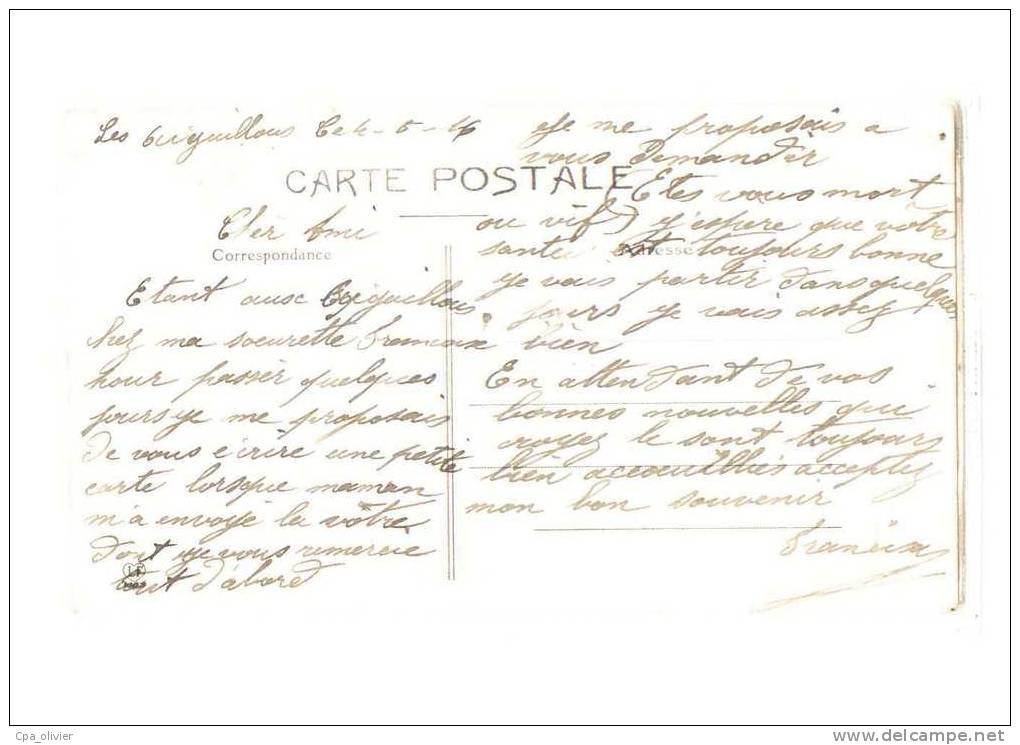 Les Eyguillons le 4-5-16
CARTE POSTALE
Cher Ami
Correspondance
Etant aux Eyguillons
chez ma soeurette
pour passer quelques
jours je me proposais
de vous écrire une petite
carte lorsque maman
m'a envoyé la vôtre
dont je vous remercie
tout d'abord
Je me proposais a
vous demander
(Etes vous mort
ou vif) j'espere que votre
santé est toujours bonne
Adresse
je vais partir dans quelques
jours je vais assez
bien
En attendant de vos
bonnes nouvelles qui
croyez le sont toujours
bien accœuillies acceptez
mon bon souvenir
Cpa_olivier
www.delcampe.net